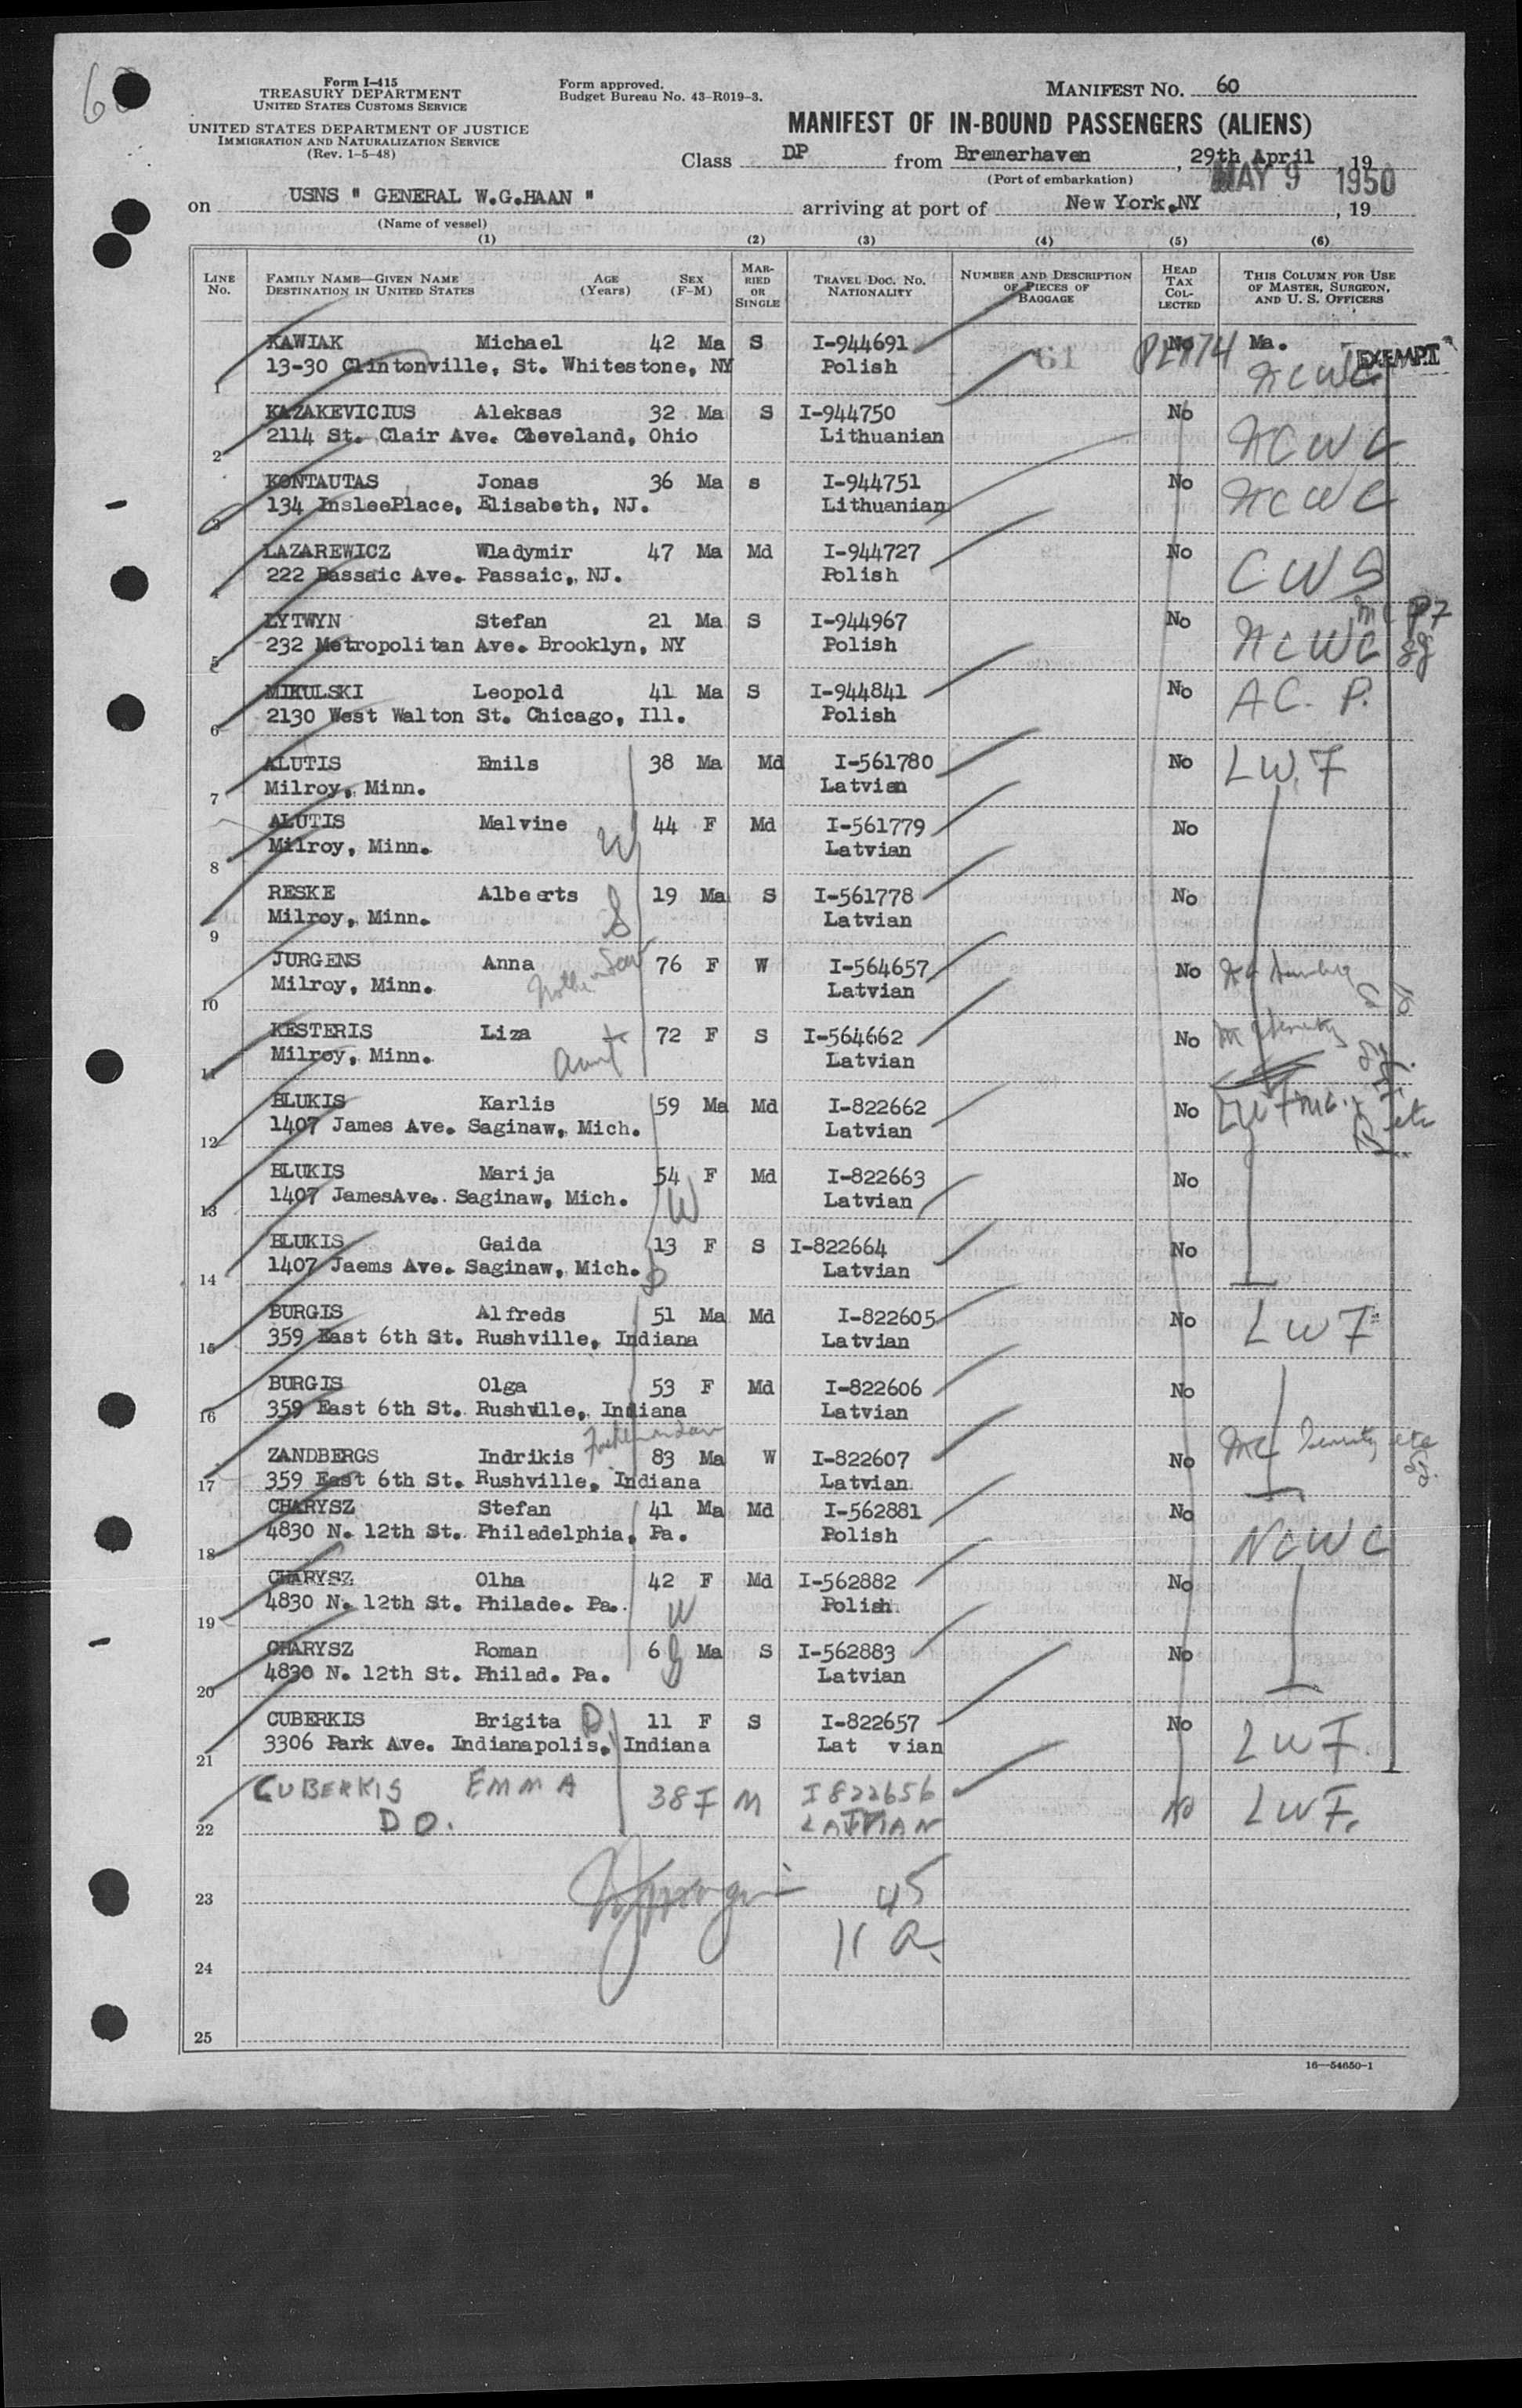 60
Form I-415
TREASURY DEPARTMENT
UNITED STATES CUSTOMS SERVICE
UNITED STATES DEPARTMENT OF JUSTICE
IMMIGRATION AND NATURALIZATION SERVICE
(Rev. 1-5-48)
Form approved.
Budget Bureau No. 43-R019-3.
MANIFEST NO. 60
MANIFEST OF IN-BOUND PASSENGERS (ALIENS)
Class DP from Bremerhaven, 29th April, 19
(Port of embarkation)
MAY 9 1950
on USNS " GENERAL W.G.HAAN " arriving at port of New York,NY, 19
(Name of vessel)
(1) (2) (3) (4) (5) (6)
LINE No. FAMILY NAME—GIVEN NAME DESTINATION IN UNITED STATES AGE (Years) SEX (F-M) MARRIED OR SINGLE TRAVEL DOC. NO. NATIONALITY NUMBER AND DESCRIPTION OF PIECES OF BAGGAGE HEAD TAX COLLECTED THIS COLUMN FOR USE OF MASTER, SURGEON, AND U. S. OFFICERS
KAWIAK Michael 42 Ma S I-944691 61 No Ma. EXEMPT
1 13-30 Clintonville, St. Whitestone, NY Polish NCWC
KAZAKEVICIUS Aleksas 32 Ma S I-944750 No
2 2114 St. Clair Ave. Cleveland, Ohio Lithuanian NCWC
KONTAUTAS Jonas 36 Ma s I-944751 No NCWC
3 134 InsleePlace, Elisabeth, NJ. Lithuanian
LAZAREWICZ Wladymir 47 Ma Md I-944727 No
4 222 Passaic Ave. Passaic, NJ. Polish CWS
LYTWYN Stefan 21 Ma S I-944967 No
5 232 Metropolitan Ave. Brooklyn, NY Polish NCWC
MIKULSKI Leopold 41 Ma S I-944841 No A C. P.
6 2130 West Walton St. Chicago, Ill. Polish
ALUTIS Emils 38 Ma Md I-561780 No LWF
7 Milroy, Minn. Latvian
ALUTIS Malvine W 44 F Md I-561779 No
8 Milroy, Minn. Latvian
RESKE Alberts S 19 Ma S I-561778 No
9 Milroy, Minn. Latvian
JURGENS Anna 76 F W I-564657 No
10 Milroy, Minn. Latvian
KESTERIS Liza 72 F S I-564662 No
11 Milroy, Minn. Aunt Latvian
BLUKIS Karlis 59 Ma Md I-822662 No LWF
12 1407 James Ave. Saginaw, Mich. Latvian
BLUKIS Marija 54 F Md I-822663 No
13 1407 JamesAve. Saginaw, Mich. W Latvian
BLUKIS Gaida 13 F S I-822664 No
14 1407 Jaems Ave. Saginaw, Mich. D Latvian
BURGIS Alfreds 51 Ma Md I-822605 No LWF
15 359 East 6th St. Rushville, Indiana Latvian
BURGIS Olga 53 F Md I-822606 No
16 359 East 6th St. Rushville, Indiana Latvian
ZANDBERGS Indrikis 83 Ma W I-822607 No
17 359 East 6th St. Rushville, Indiana Latvian
CHARYSZ Stefan 41 Ma Md I-562881 No
18 4830 N. 12th St. Philadelphia, Pa. Polish NCWC
CHARYSZ Olha 42 F Md I-562882 No
19 4830 N. 12th St. Philade. Pa. W Polish
CHARYSZ Roman 6 S Ma S I-562883 No
20 4830 N. 12th St. Philad. Pa. Latvian
CUBERKIS Brigita D 11 F S I-822657 No LWF.
21 3306 Park Ave. Indianapolis, Indiana Lat vian
CUBERKIS EMMA 38 F M I 822656 No LWF.
22 DO. LATVIAN
23 45
24
25
16—54650-1